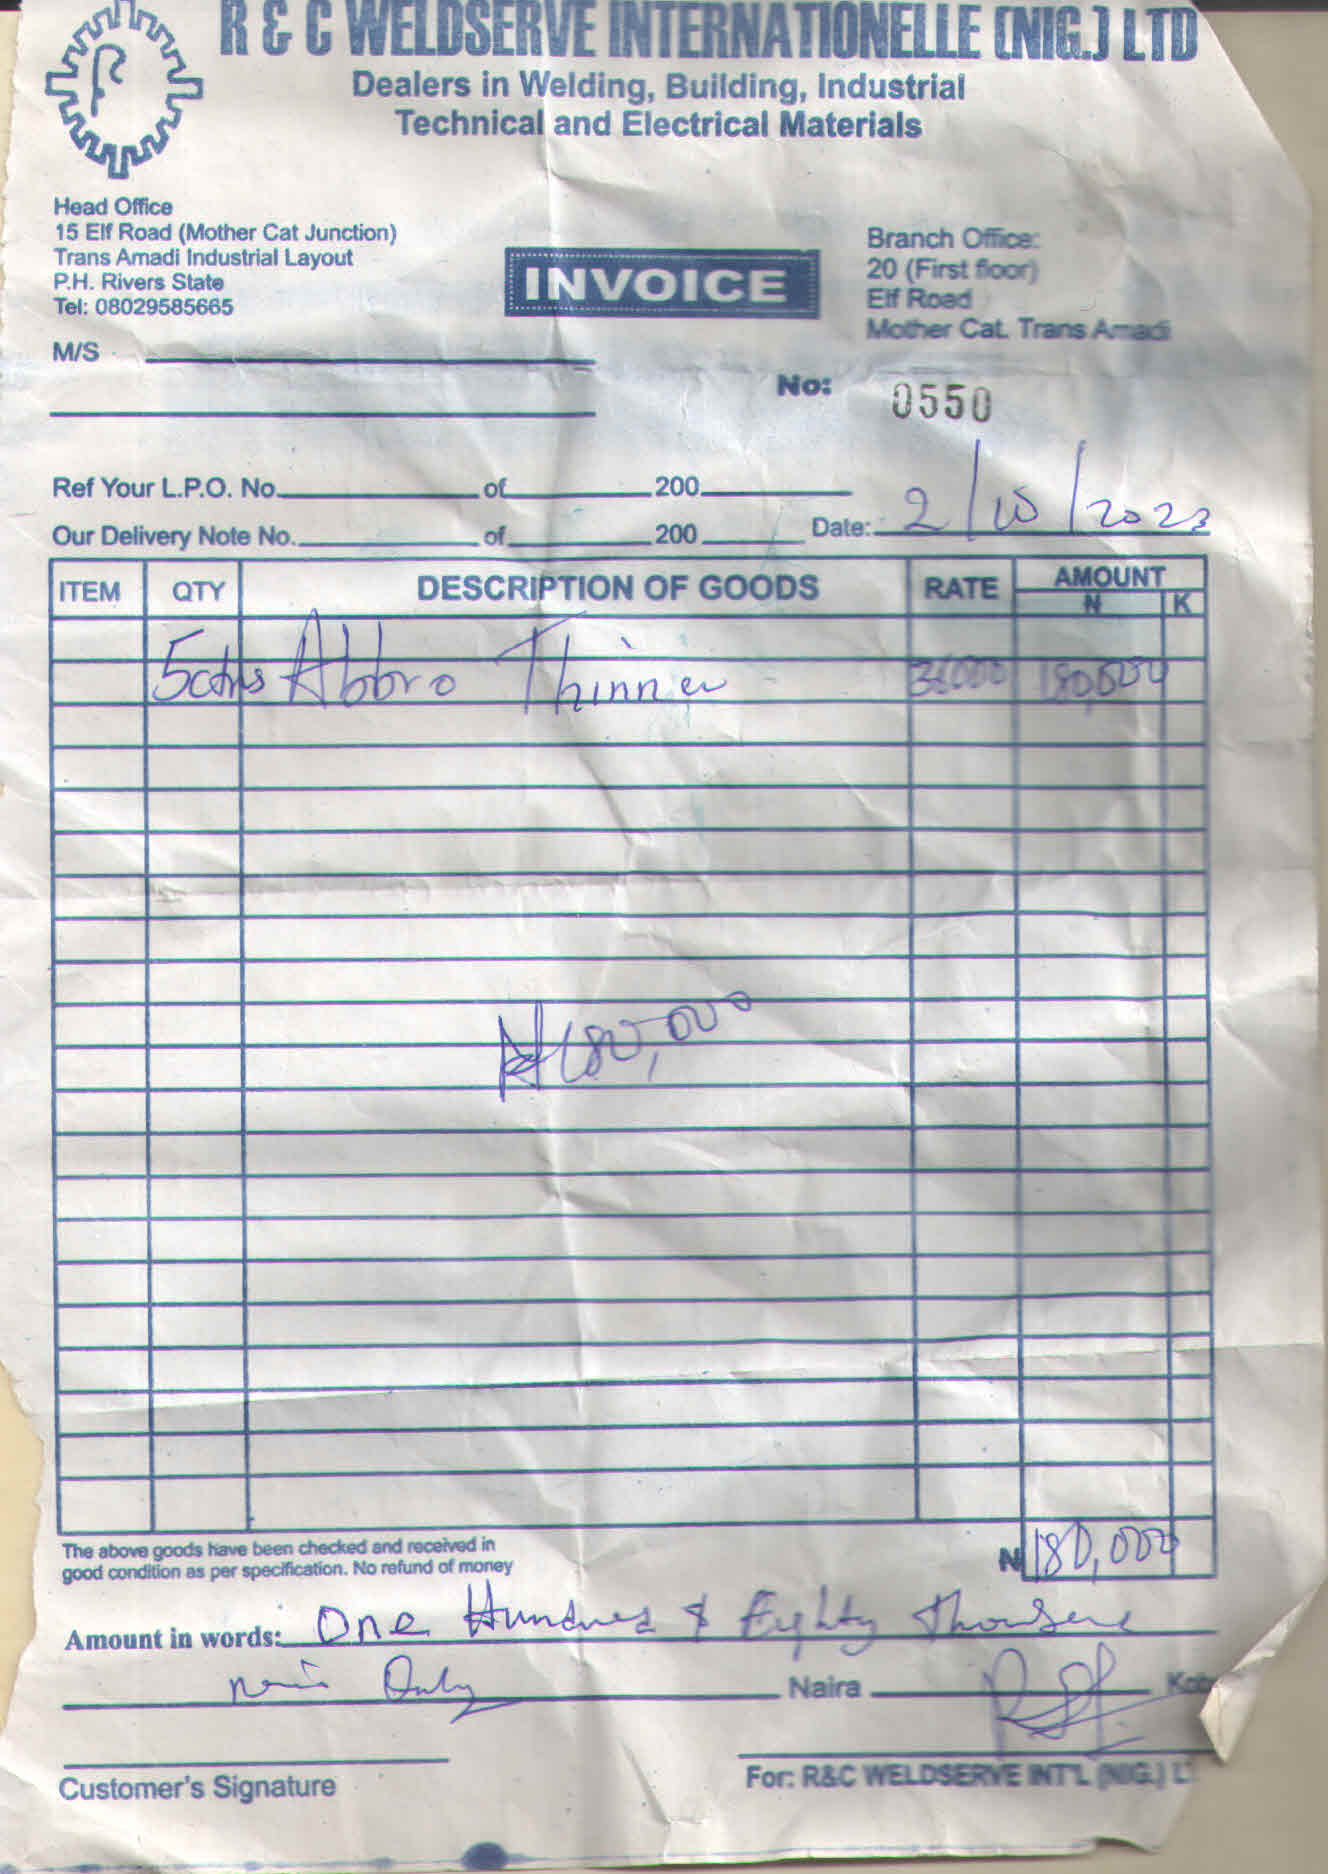 R & C WELDSERVE INTERNATIONELLE (NIG.) LTD
Dealers in Welding, Building, Industrial
Technical and Electrical Materials
Head Office
15 Elf Road (Mother Cat Junction)
Trans Amadi Industrial Layout
P.H. Rivers State
Tel: 08029585665
INVOICE
Branch Office:
20 (First floor)
Elf Road
Mother Cat. Trans Amadi
M/S
No: 0550
Ref Your L.P.O. No. of 200
Our Delivery Note No. of 200 Date: 2/10/2023
ITEM QTY DESCRIPTION OF GOODS RATE AMOUNT
N K
5ctns Abbro Thinner 36000 180,000
₦180,000
The above goods have been checked and received in
good condition as per specification. No refund of money
N 180,000
Amount in words: One Hundred & Eighty Thousand
Naira Only Naira Kob
Customer's Signature
For: R&C WELDSERVE INT'L (NIG.) L